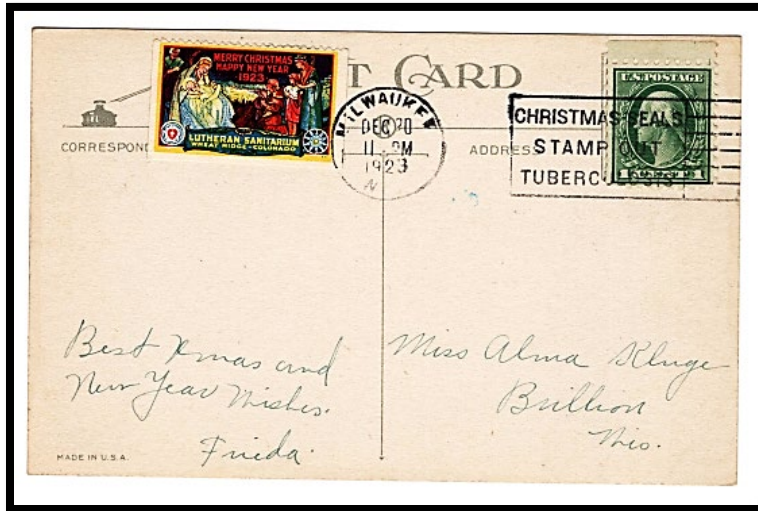 MERRY CHRISTMAS
HAPPY NEW YEAR
1923
LUTHERAN SANITARIUM
WHEAT RIDGE - COLORADO
T CARD
MILWAUKEE
DEC 20
PM
1923
CHRISTMAS SEALS
STAMP OUT
TUBERCULOSIS
U.S. POSTAGE
CORRESPOND
ADDRESS
Best Xmas and
New Year Wishes.
Frieda.
Miss Alma Kluge
Brillion
Wis.
MADE IN U.S.A.